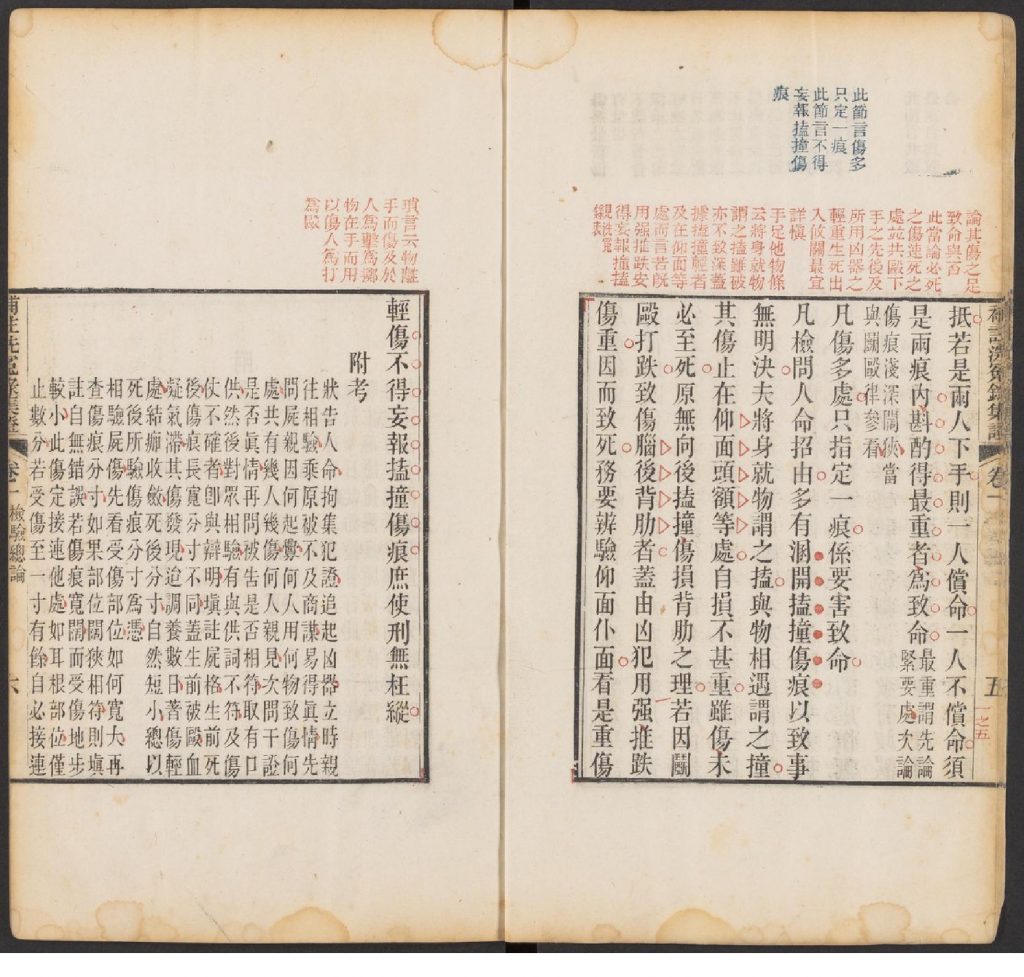 此節言傷多
只定一痕
此節言不得
妄報搕撞傷
痕
論其傷之足
致命與否
此當論必死
之傷速死之
處並共毆下
手之先後及
所用凶器之
輕重生死出
入攸關最宜
詳慎
手足他物條
云將身就物
謂之搕雖被
亦不致深蓋
據搕撞輕者
及在仰面等
處而言若旣
用强推跌安
得妄報搕撞
卷一
五
一之五
抵若是兩人下手則一人償命一人不償命須
是兩痕內斟酌得最重者爲致命
最重謂先論
緊要處次論
傷痕淺深闊狹當
與鬬毆律參看
凡傷多處只指定一痕係要害致命
凡檢問人命招由多有涸開搕撞傷痕以致事
無明決夫將身就物謂之搕與物相遇謂之撞
其傷止在仰面頭額等處自損不甚重雖傷未
必至死原無向後搕撞傷損背肋之理若因鬬
毆打跌致傷腦後背肋者蓋由凶犯用强推跌
傷重因而致死務要辨驗仰面仆面看是重傷
瑣言云物離
手而傷及於
人爲擊爲擲
物在手而用
以傷人爲打
爲毆
輕傷不得妄報搕撞傷痕庶使刑無枉縱
附考
狀告人命拘集犯證追起凶器立時親
往相驗乘原被不及商謀易得眞情先
問屍親因何起釁何人用何物致傷何
處共有幾人幾傷何人親見次問干證
是否眞情再問被告是否相符取有口
供然後對眾相驗有與供詞不符及傷
仗不確者卽與辯明塡註屍格生前死
後傷痕長寬分寸不同蓋生前被毆血
凝氣滯其傷發現迨調養數日著傷輕
處結痂收斂死後分寸自然短小總以
死後所驗傷痕分寸爲憑
相驗屍傷先看受傷部位如何寬大再
查傷痕分寸如果部位闊狹相符則塡
註自無錯誤若傷痕寬闊而受傷地步
較小此傷定接連他處如耳根部位僅
止數分若受傷至一寸有餘自必接連
卷一
檢驗總論
六